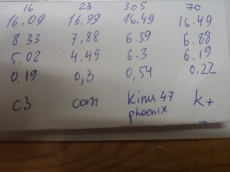 16 23 305 70
16.09 16.99 16.49 16.49
8.33 7.88 6.39 6.88
5.02 4.49 6.3 6.19
0,19 0,3 0,54 0.22
c3 com kinu 47 k+
phoenix